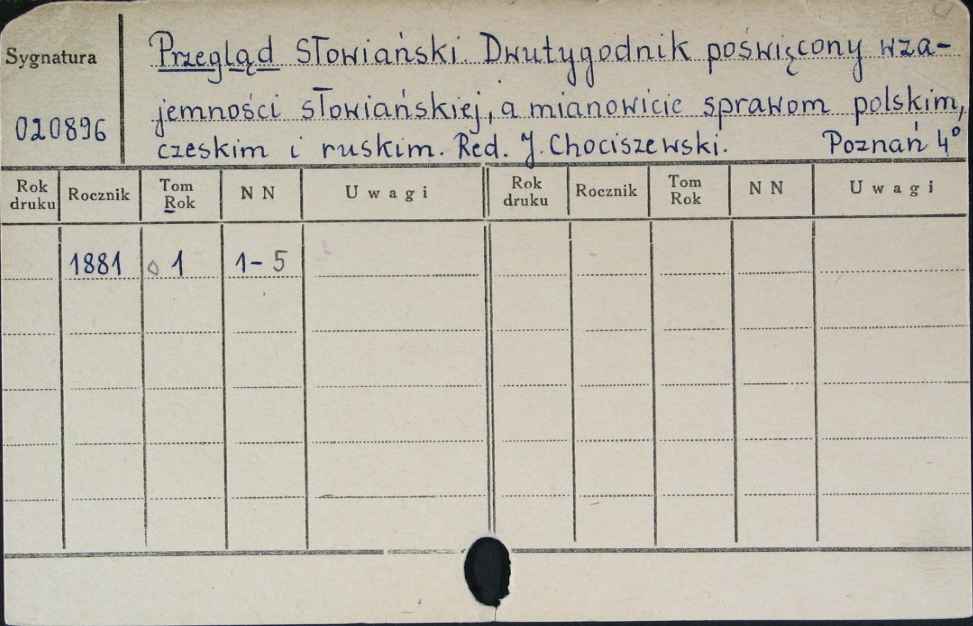 Sygnatura
020896
Przegląd Słowiański. Dwutygodnik poświęcony wza-
jemności słowiańskiej, a mianowicie sprawom polskim,
czeskim i ruskim. Red. J. Chociszewski. Poznań 4°
Rok druku Rocznik Tom Rok N N Uwagi Rok druku Rocznik Tom Rok N N Uwagi
1881 1 1-5